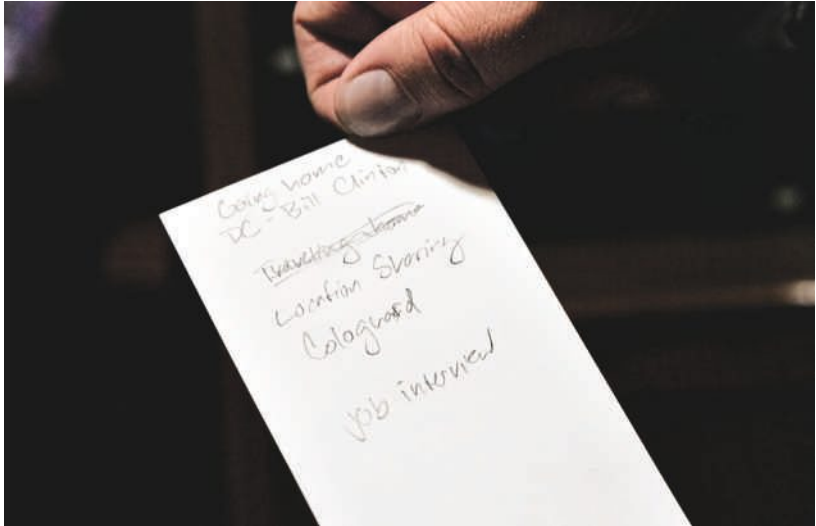 Going home
DC - Bill Clinton
Traveling alone
Location Sharing
Cologuard
job interview